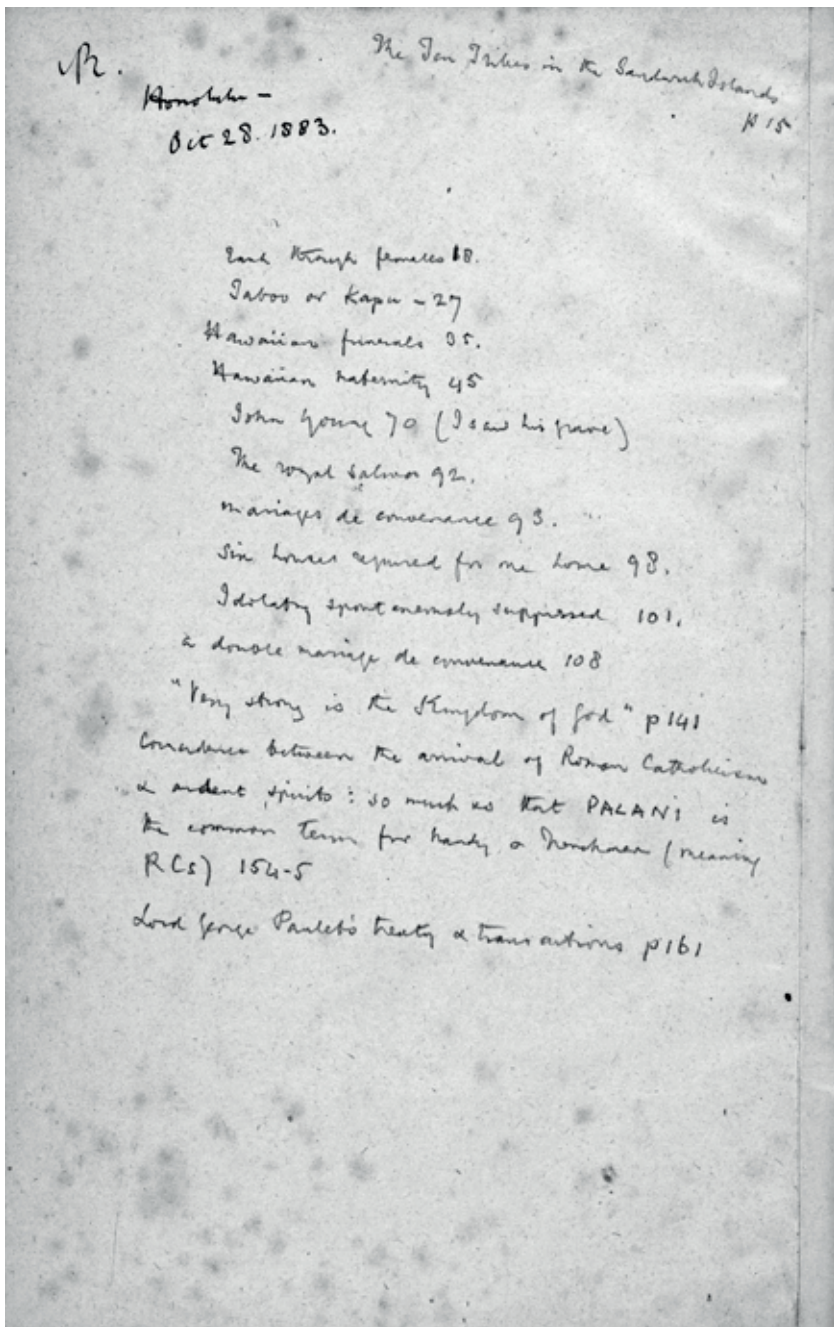 R.
The Ten Tribes in the Sandwich Islands
p 15
Honolulu -
Oct 28. 1883.
Rank through females 18.
Taboo or Kapu - 27
Hawaiian funerals 35.
Hawaiian maternity 45
John Young 70 (I saw his grave)
The royal salmon 92.
mariages de convenance 93.
Six houses required for one home 98.
Idolatry spontaneously suppressed 101.
a double mariage de convenance 108
"Very strong is the Kingdom of God" p 141
Coincidence between the arrival of Roman Catholicism
& ardent spirits: so much so that PALANI is
the common term for brandy & Frenchmen (meaning
RCs) 154-5
Lord George Paulet's treaty & transactions p 161